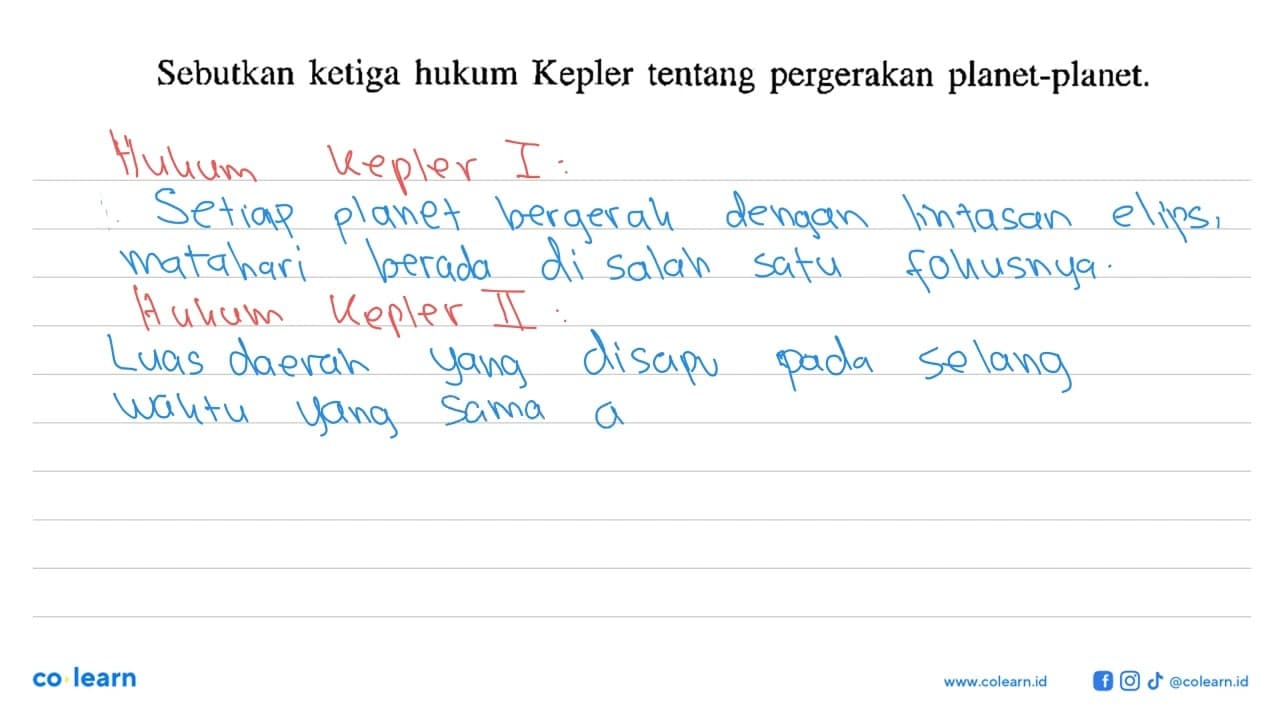 Sebutkan ketiga hukum Kepler tentang pergerakan planet-planet.
Hukum Kepler I :
Setiap planet bergerak dengan lintasan elips,
matahari berada di salah satu fokusnya.
Hukum Kepler II :
Luas daerah yang disapu pada selang
waktu yang sama a
co learn
www.colearn.id
@colearn.id